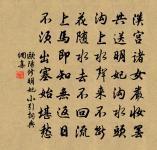 漢宮諸女嚴妝罷
共送明妃溝水頭
溝上水聲來不斷
花隨水去不回流
上馬即知無返日
不須出塞始堪愁
歐陽修明妃小引詞典
網集